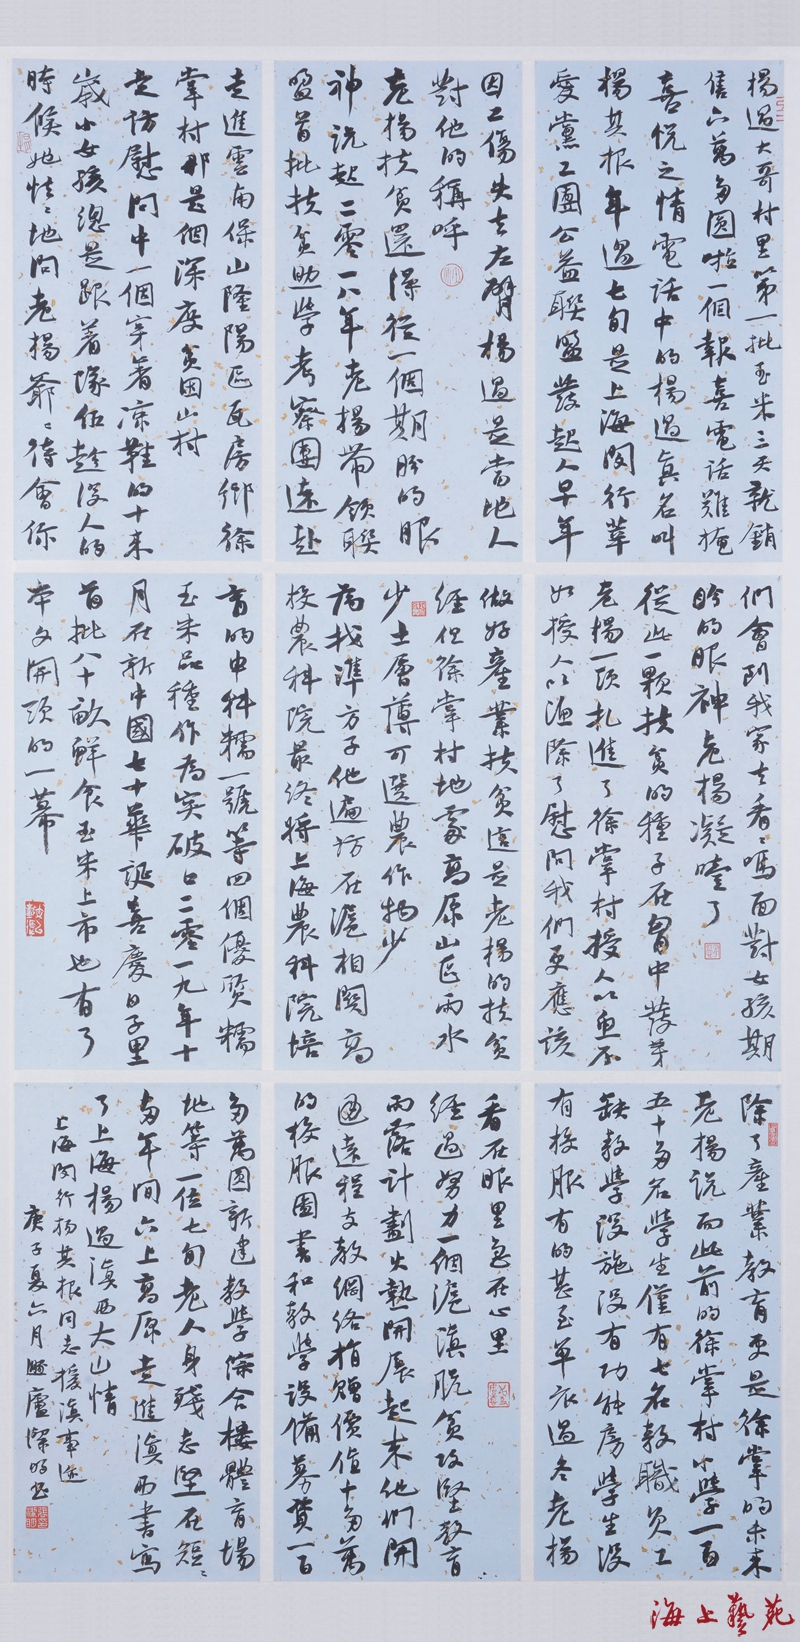 楊過大哥村里第一批玉米三天就銷
售六萬多圓啦一個報喜電話難掩
喜悅之情電話中的楊過真名叫
楊其根年過七旬是上海閔行莘
愛黨工團公益聯盟發起人早年
因工傷失去左臂楊過是當地人
對他的稱呼
老楊扶貧還得從一個期盼的眼
神說起二零一八年老楊帶領聯
盟首批扶貧助學考察團遠赴
走進雲南保山隆陽區瓦房鄉徐
掌村那是個深度貧困山村
走訪慰問中一個穿著涼鞋的十來
歲小女孩總是跟著隊伍趁沒人的
時候她怯〻地問老楊爺〻待會你
們會到我家去看〻嗎面對女孩期
盼的眼神老楊凝噎了
從此一顆扶貧的種子在胸中發芽
老楊一頭扎進了徐掌村授人以魚不
如授人以漁除了慰問我們更應該
做好產業扶貧這是老楊的扶貧
經但徐掌村地處高原山區雨水
少土層薄可選農作物少
為找準方子他遍訪在滬相關高
校農科院最終將上海農科院培
育的申科糯一號等四個優質糯
玉米品種作為突破口二零一九年十
月在新中國七十華誕喜慶日子里
首批八十畝鮮食玉米上市也有了
本文開頭的一幕
除了產業教育更是徐掌的未來
老楊說而此前的徐掌村小學一百
五十多名學生僅有七名教職員工
缺教學設施沒有功能房學生沒
有校服有的甚至單衣過冬老楊
看在眼里急在心里
經過努力一個滬滇脫貧攻堅教育
雨露計劃火熱開展起來他們開
通遠程支教網絡捐贈價值十多萬
的校服圖書和教學設備募資一百
多萬圓新建教學綜合樓體育場
地等一位七旬老人身殘志堅在短〻
兩年間六上高原走進滇西書寫
了上海楊過滇西大山情
上海閔行楊其根同志援滇事迹
庚子夏六月廬深明書
海上藝苑